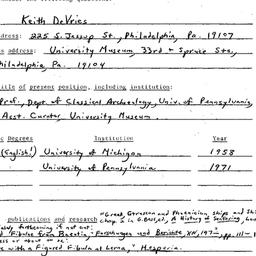 Keith DeVries
dress: 225 S. Jessup St., Philadelphia, Pa. 19107
s address: University Museum, 33rd + Spruce Sts,
hiladelphia, Pa. 19104
itle of present position, including institution:
Prof., Dept. of Classical Archaeology, Univ. of Pennsylvania,
Asst. Curator, University Museum
c Degrees Institution Year
(English!) University of Michigan 1958
University of Pennsylvania 1971
publications and research "Greek, Etruscan and Phoenician Ships and Shi
Chap. 3 in G. Bass, ed., A History of Seafaring,
forthcoming if not out:
d Fibula from Boeotia," Forschungen und Berichte, XIV, 197-, pp. 111-1
ess or about to be:
e with a Figured Fibula at Lerna," Hesperia.